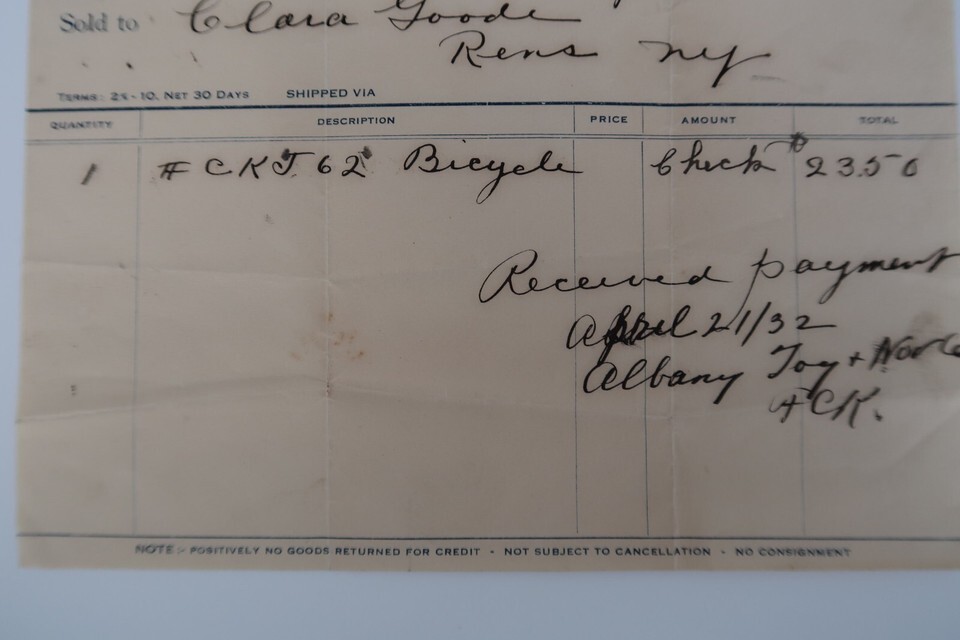 Sold to Clara Goode
Rens NY
TERMS: 2% - 10, NET 30 DAYS SHIPPED VIA
QUANTITY DESCRIPTION PRICE AMOUNT TOTAL
1 # CKJ 62 Bicycle Check $23.50
Received payment
April 21/32
Albany Toy + Nov Co
FCK.
NOTE:- POSITIVELY NO GOODS RETURNED FOR CREDIT - NOT SUBJECT TO CANCELLATION - NO CONSIGNMENT